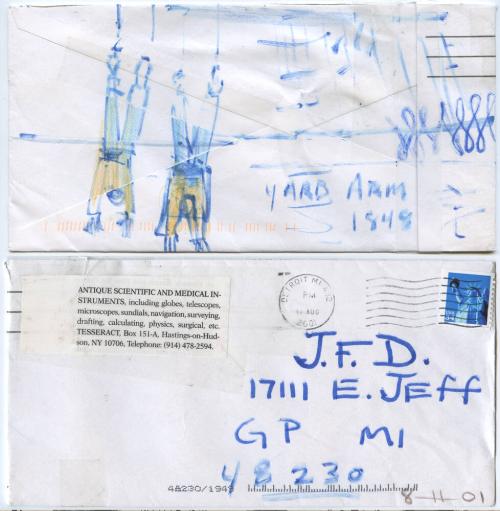 YARB ARM
1848
ANTIQUE SCIENTIFIC AND MEDICAL IN-
STRUMENTS, including globes, telescopes,
microscopes, sundials, navigation, surveying,
drafting, calculating, physics, surgical, etc.
TESSERACT, Box 151-A, Hastings-on-Hud-
son, NY 10706, Telephone: (914) 478-2594.
DETROIT MI
PM
AUG
2001
J.F.D.
17111 E. JEFF
GP MI
48230
48230/1949
8-11-01